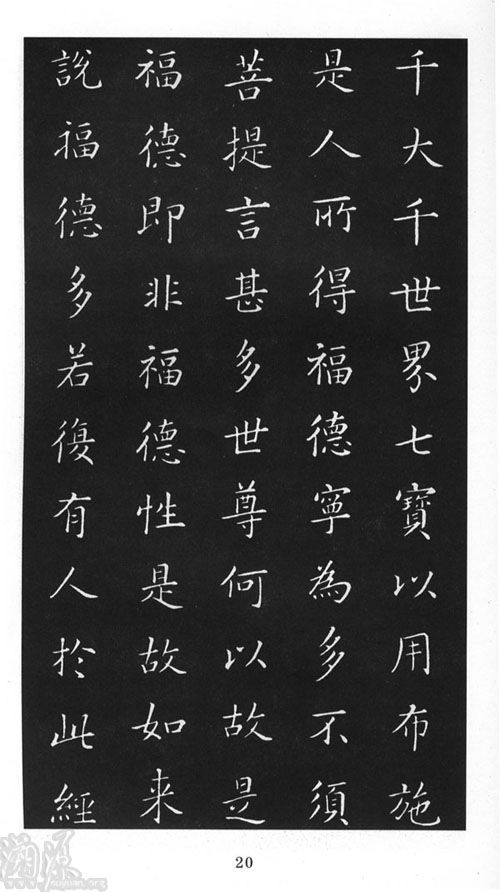 千大千世界七寶以用布施
是人所得福德寧為多不須
菩提言甚多世尊何以故是
福德即非福德性是故如来
說福德多若復有人於此經
20
溯源
suyuan.org